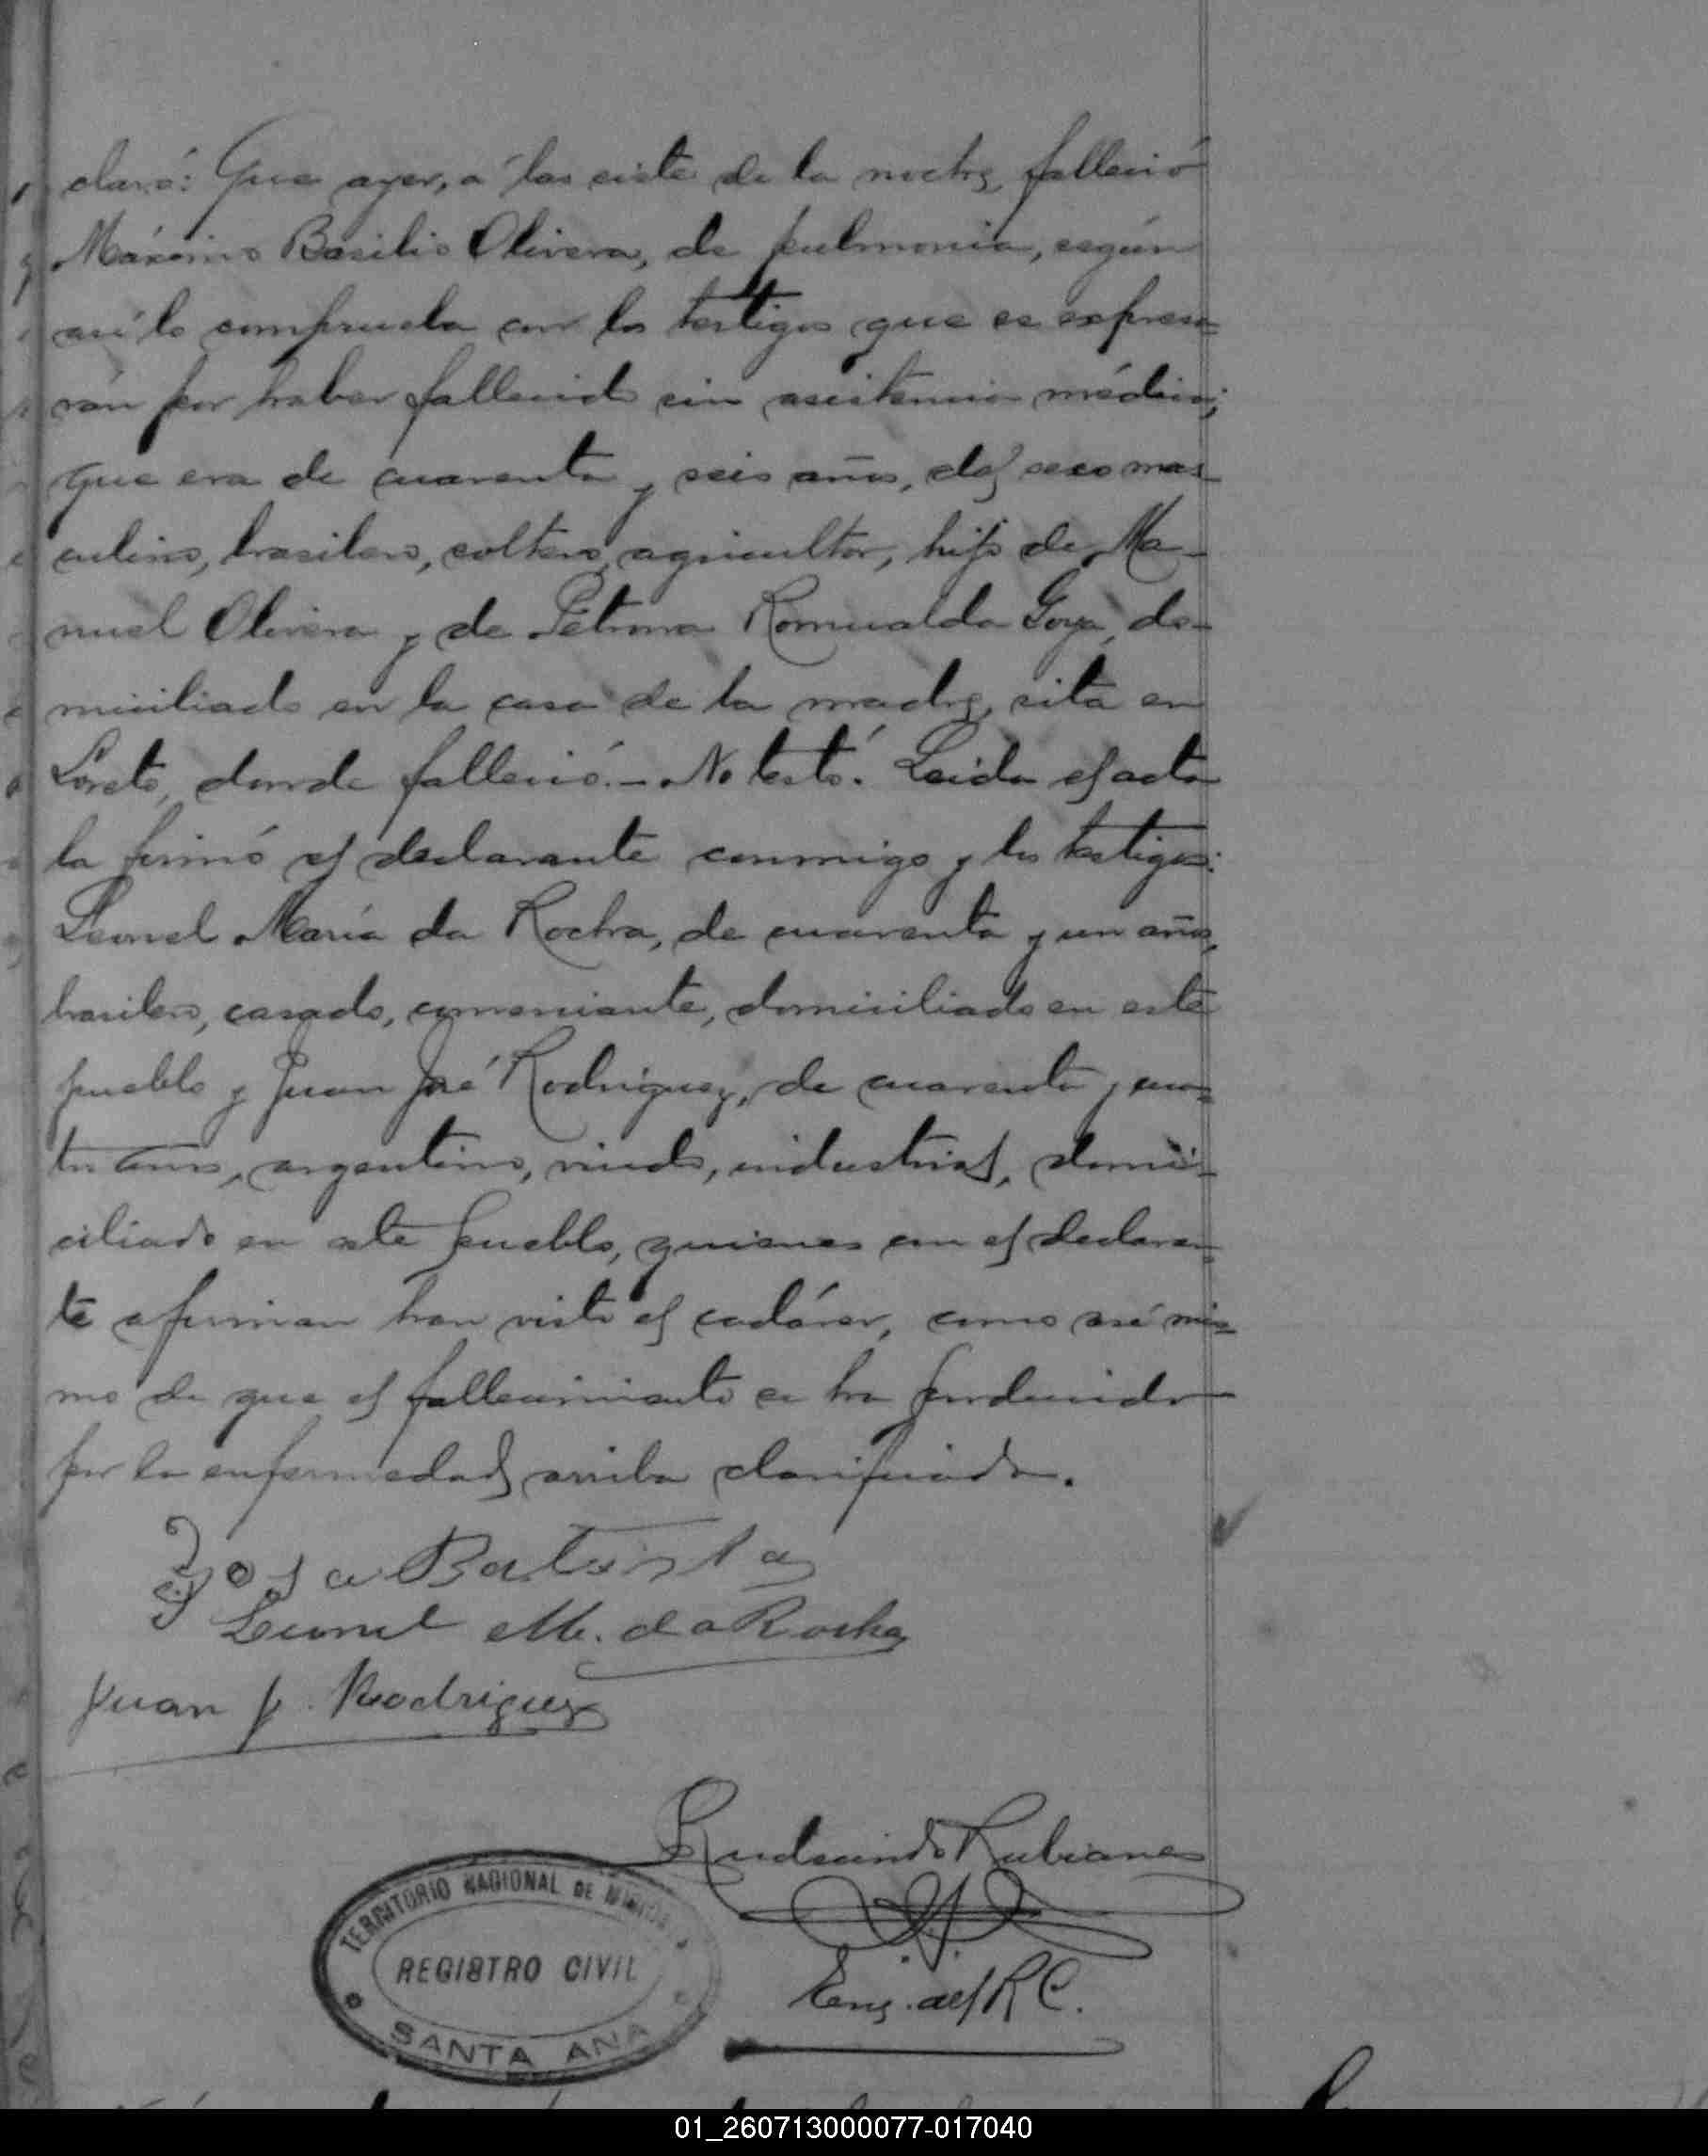 claró: Que ayer, á las siete de la noche, falleció
Máximo Basilio Olivera, de pulmonia, según
así lo comprueba con los testigos que se expresa=
rán por haber fallecido sin asistencia médica;
que era de cuarenta y seis años, del sexo mas-
culino, brasilero, soltero, agricultor, hijo de Ma-
nuel Olivera y de Petrona Romualda Goya, do-
miciliado en la casa de la madre, sita en
Loreto, donde falleció.- No testó. Leida el acta
la firmó el declarante conmigo y los testigos:
Leonel María da Rocha, de cuarenta y un años,
brasilero, casado, comerciante, domiciliado en este
pueblo y Juan José Rodriguez, de cuarenta y cua=
tro años, argentino, viudo, industrial, domi-
ciliado en este pueblo, quienes con el declaran=
te afirman han visto el cadáver, como así mis=
mo de que el fallecimiento se ha producido
por la enfermedad arriba clarificada.
Batista
Leonel M. da Rocha
Juan J. Rodriguez
Rudecindo Rubianes
Enc. del R C.
TERRITORIO NACIONAL DE MISIONES
REGISTRO CIVIL
SANTA ANA
01_260713000077-017040